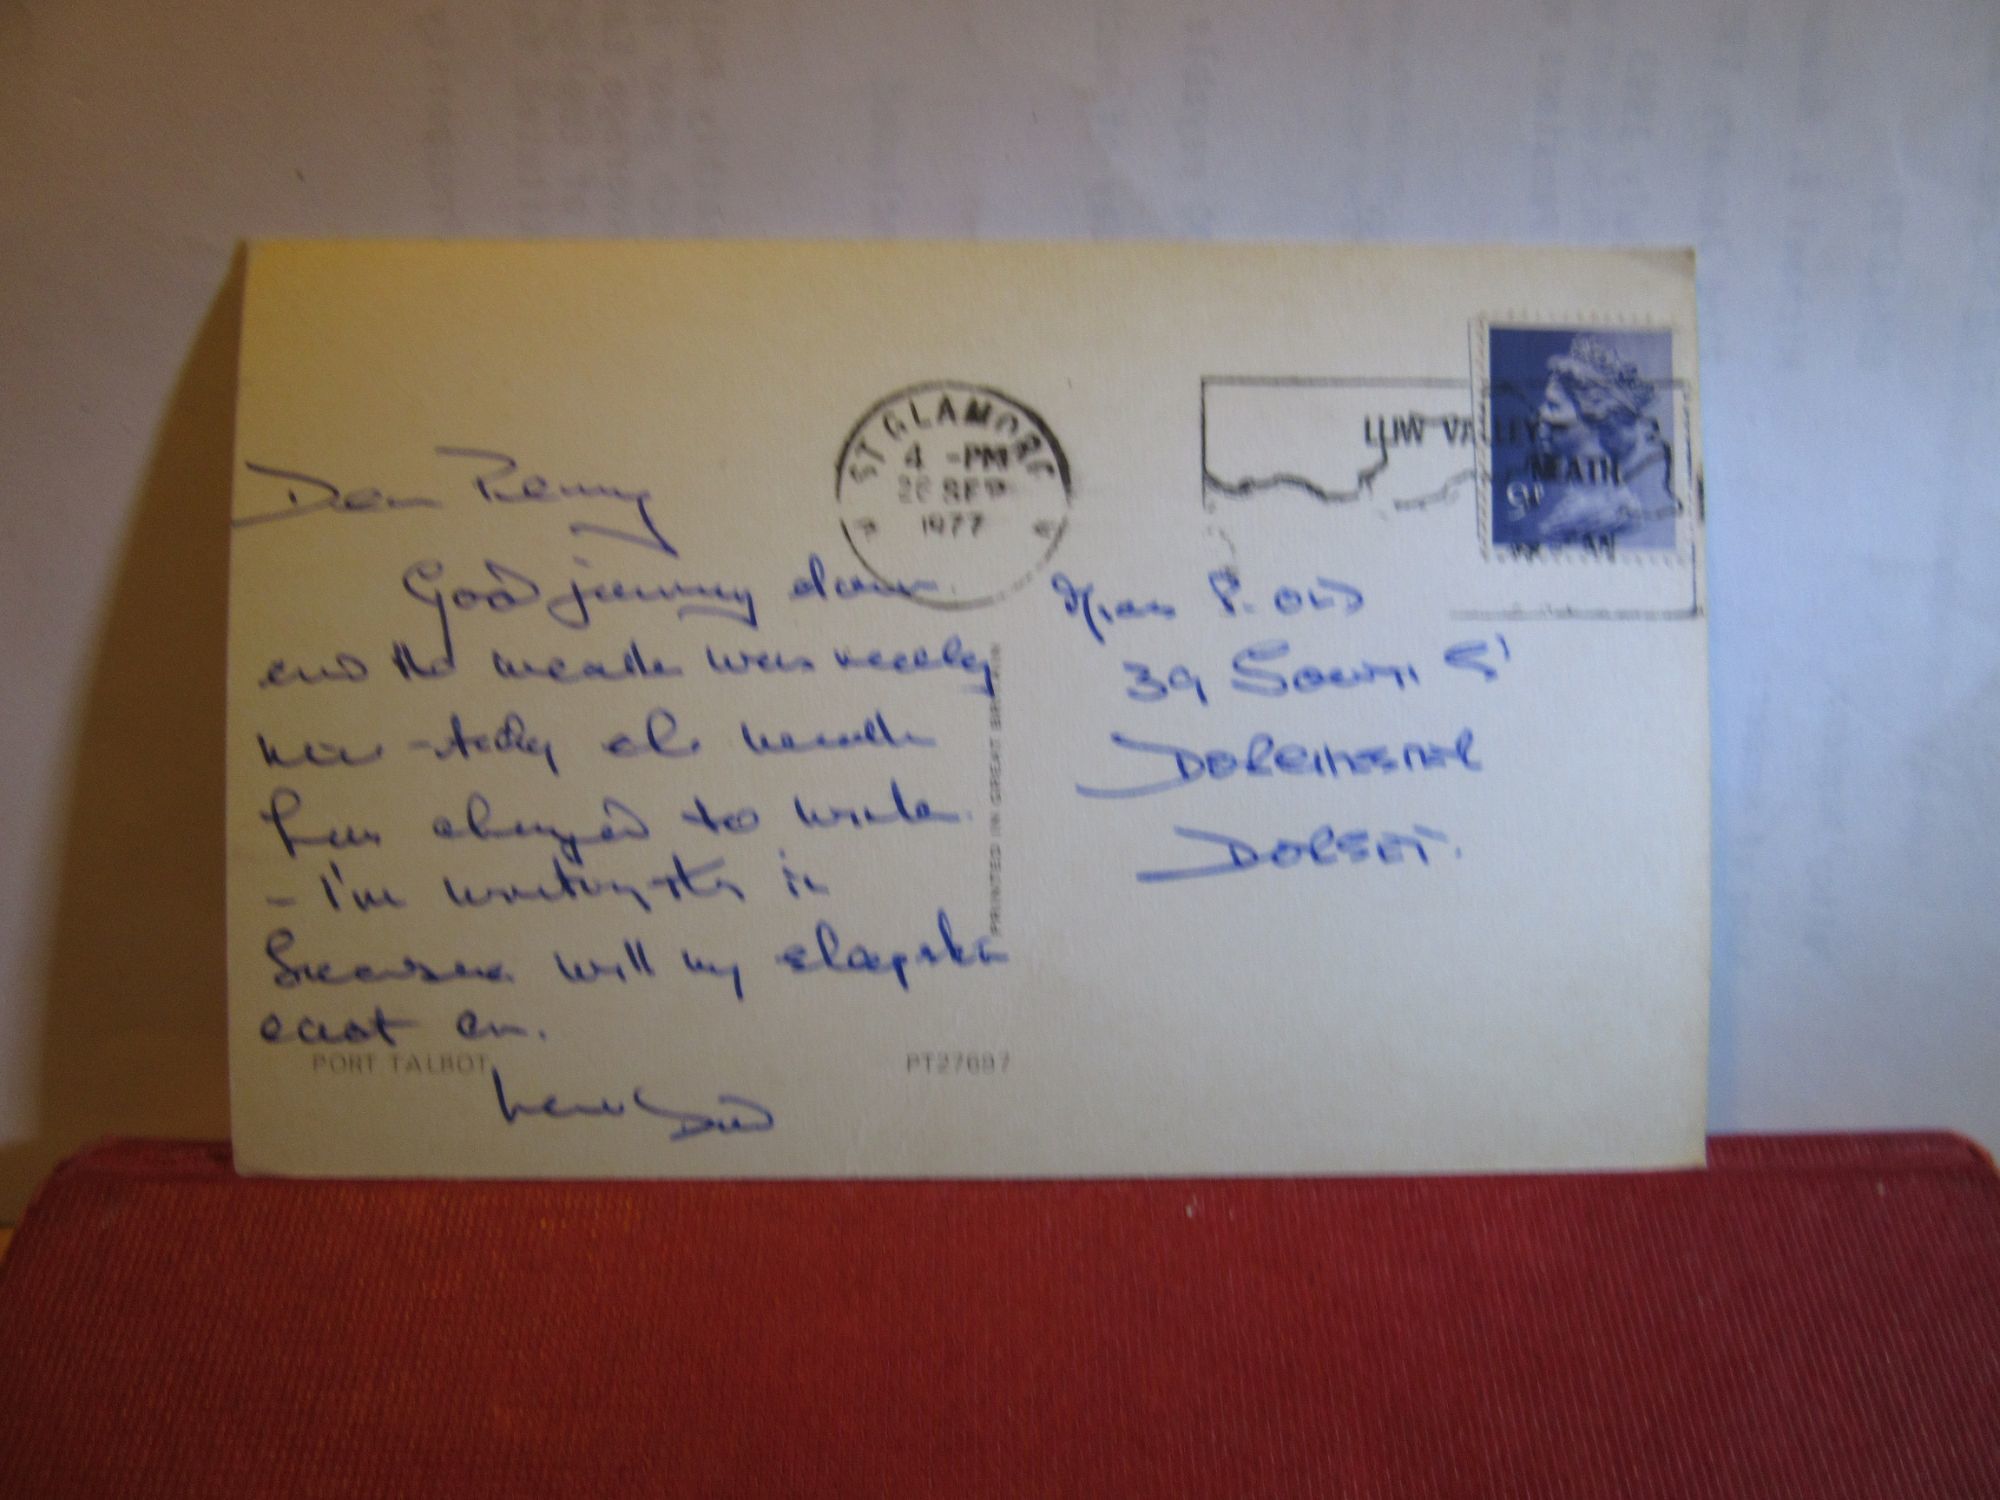 Dear Penny
Good journey down
and the weather was really
nice - today the weather
has changed to winter
- I'm writing this in
Swansea with my
coat on.
Love
PORT TALBOT
PT27697
PRINTED IN GREAT BRITAIN
ST GLAMORG
4 -PM
SEP
1977
VALLEY
NEATH
9P
Miss P. OLD
39 SOUTH ST
DORCHESTER
DORSET.